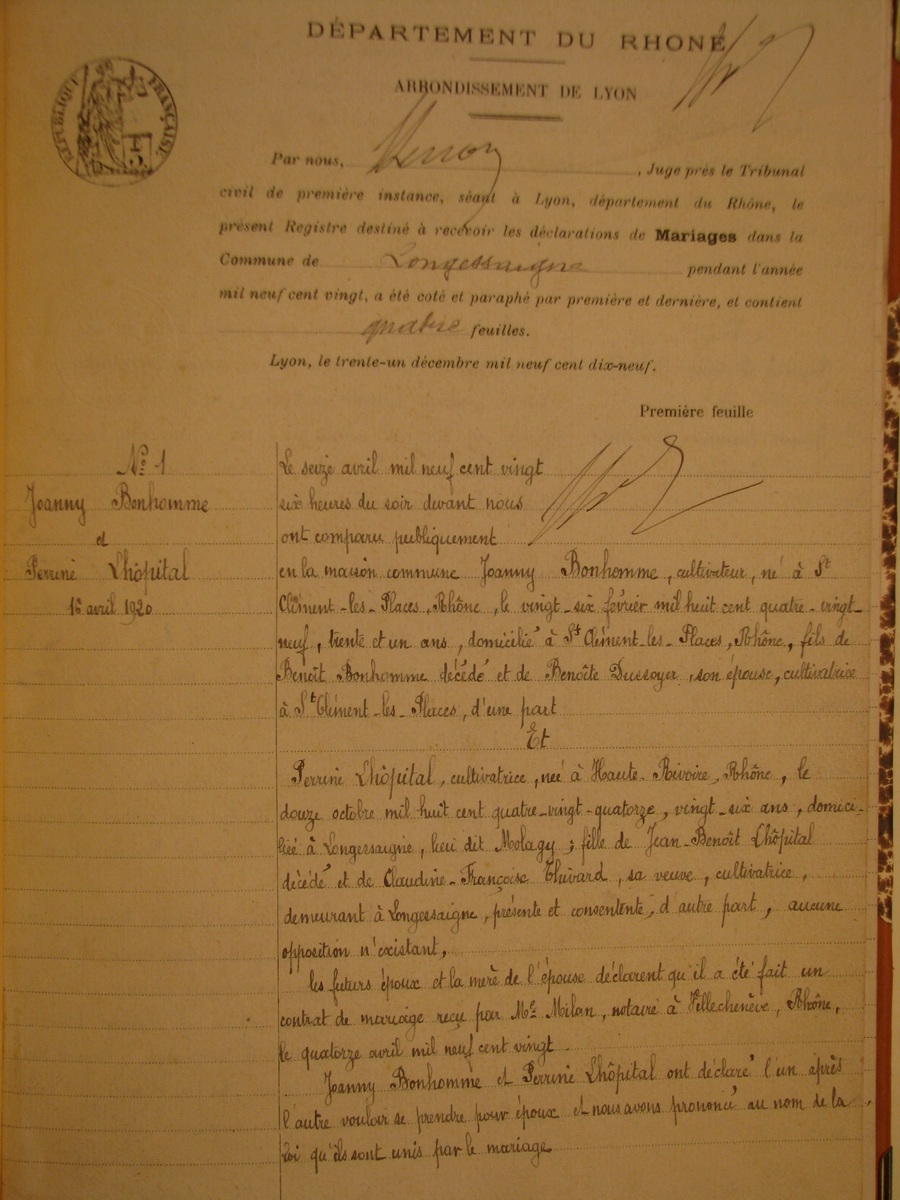 DÉPARTEMENT DU RHONE
ARRONDISSEMENT DE LYON
RÉPUBLIQUE FRANÇAISE
Par nous, , Juge près le Tribunal
civil de première instance, séant à Lyon, département du Rhône, le
présent Registre destiné à recevoir les déclarations de Mariages dans la
Commune de Longessaigne pendant l'année
mil neuf cent vingt, a été coté et paraphé par première et dernière, et contient
quatre feuilles.
Lyon, le trente-un décembre mil neuf cent dix-neuf.
Première feuille
N° 1
Joanny Bonhomme
et
Perrine Lhôpital
16 avril 1920
Le seize avril mil neuf cent vingt
six heures du soir devant nous
ont comparu publiquement
en la maison commune Joanny Bonhomme, cultivateur, né à St
Clément-les-Places, Rhône, le vingt-six février mil huit cent quatre-vingt-
neuf, trente et un ans, domicilié à St Clément-les-Places, Rhône, fils de
Benoît Bonhomme décédé et de Benoîte Dussoyer, son épouse, cultivatrice
à St Clément-les-Places, d'une part
Et
Perrine Lhôpital, cultivatrice, née à Haute-Rivoire, Rhône, le
douze octobre mil huit cent quatre-vingt-quatorze, vingt-six ans, domici-
liée à Longessaigne, lieu dit Molagy; fille de Jean-Benoît Lhôpital
décédé et de Claudine-Françoise Thivard, sa veuve, cultivatrice,
demeurant à Longessaigne, présente et consentente, d'autre part, aucune
opposition n'existant,
les futurs époux et la mère de l'épouse déclarent qu'il a été fait un
contrat de mariage reçu par Me Milan, notaire à Villechenève, Rhône,
le quatorze avril mil neuf cent vingt.
Joanny Bonhomme et Perrine Lhôpital ont déclaré l'un après
l'autre vouloir se prendre pour époux et nous avons prononcé au nom de la
loi qu'ils sont unis par le mariage